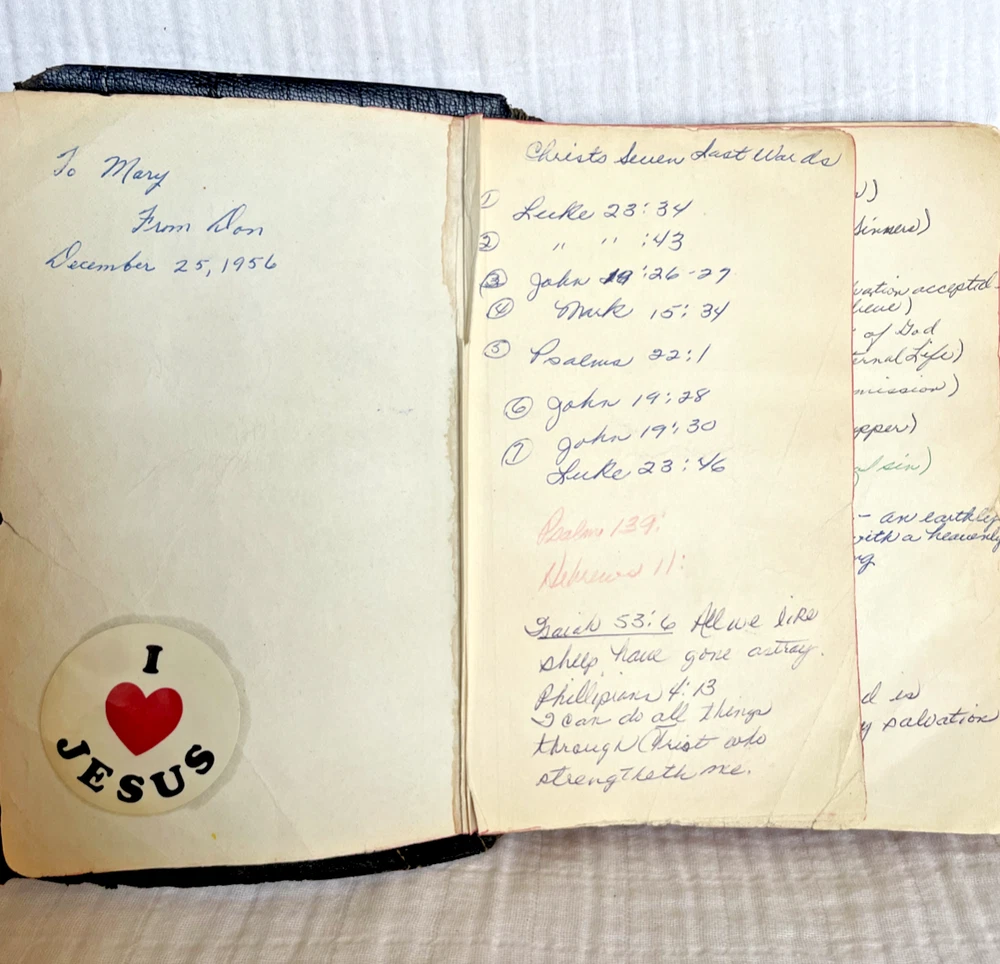 To Mary
From Don
December 25, 1956
I
JESUS
Christs Seven Last Words
① Luke 23:34
② " " :43
③ John 19:26-27
④ Mark 15:34
⑤ Psalms 22:1
⑥ John 19:28
⑦ John 19:30
Luke 23:46
Psalm 139:
Hebrews 11:
Isaiah 53:6 All we like
sheep have gone astray.
Phillipians 4:13
I can do all things
through Christ who
strengtheth me.
sinners)
accepted-
of God
Life)
sin)
- an earthly
with a heavenly
is
salvation